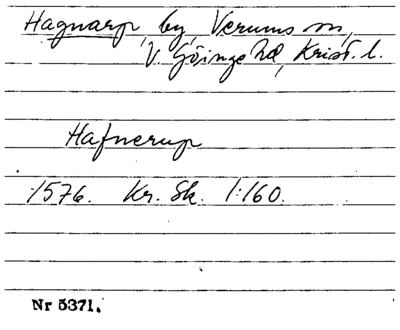 Hagnarp, by, Verums sn,
V. Göinge hd, Krist. l.
Hafnerup
1576. Kr. Sk. 1:160.
Nr 5371.